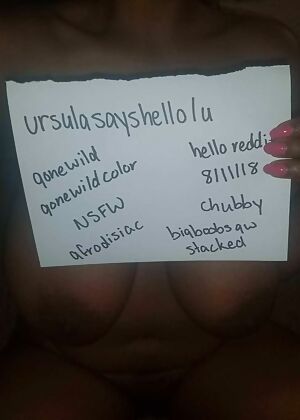 ursulasayshello/u
gonewild
gonewildcolor
NSFW
afrodisiac
hello reddi
8/11/18
chubby
bigboobsgw
stacked